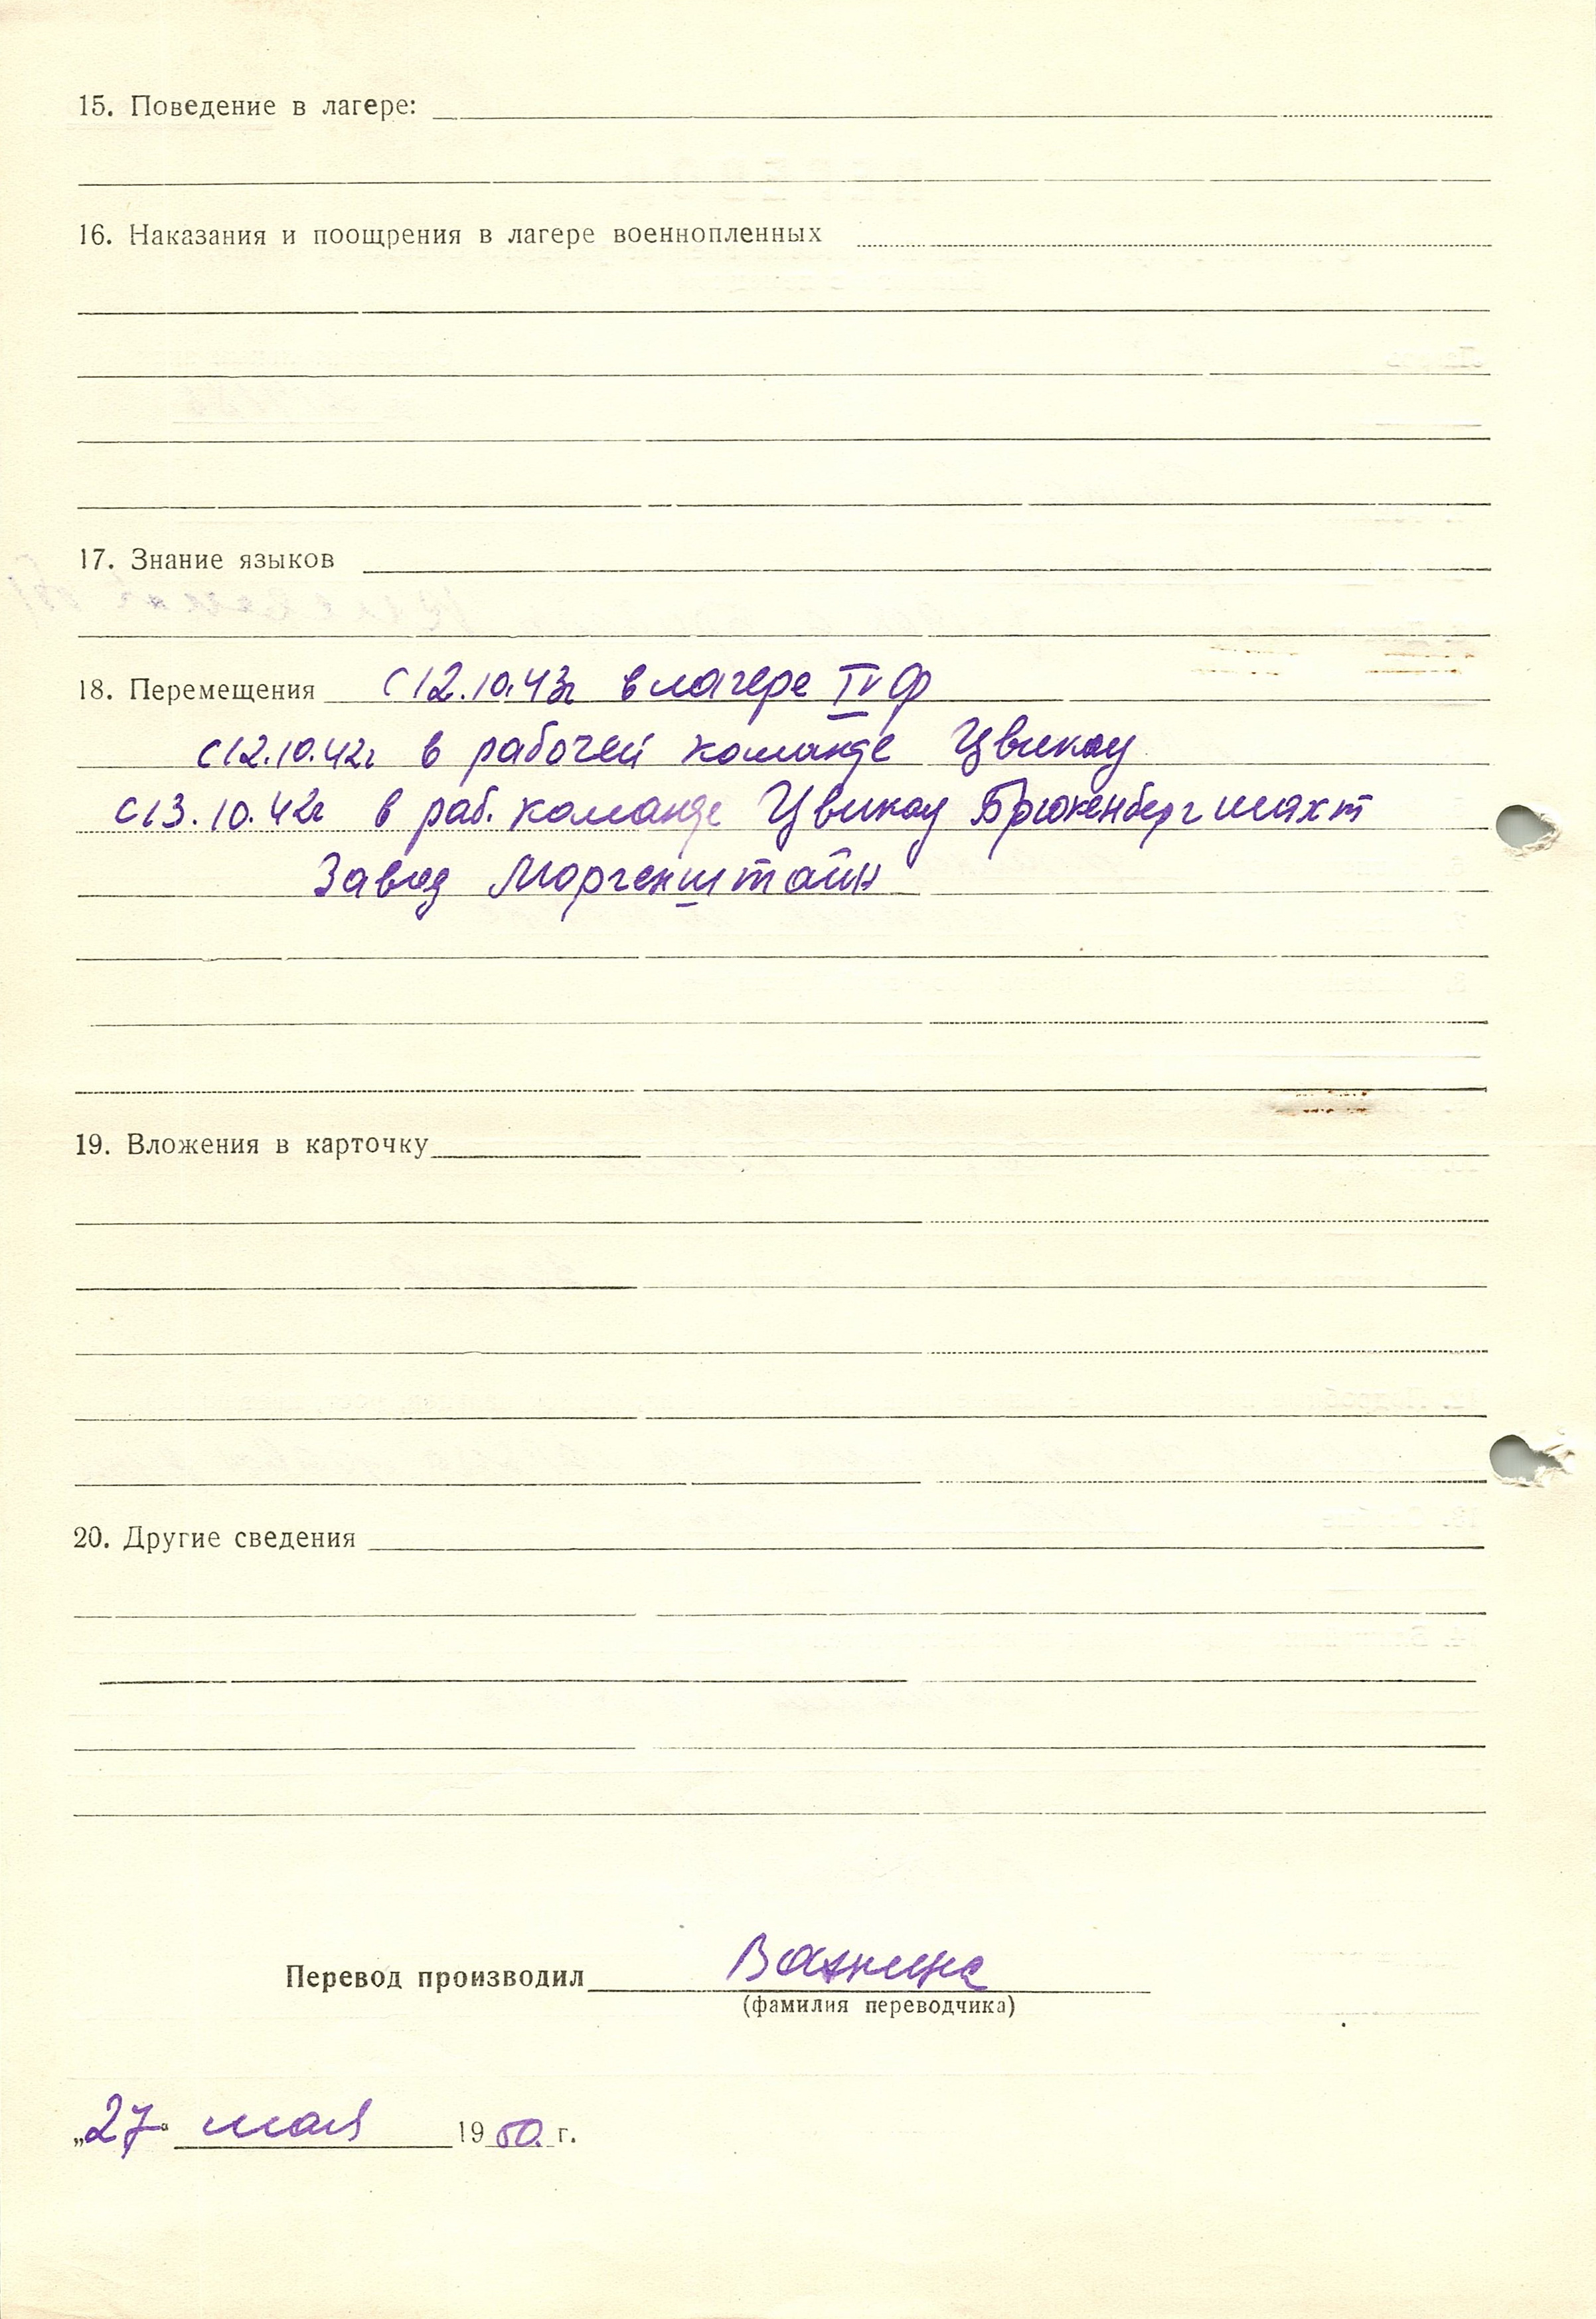 15. Поведение в лагере:
16. Наказания и поощрения в лагере военнопленных
17. Знание языков
18. Перемещения с 12.10.43г в лагере IV Ф
с 12.10.42г в рабочей команде Цвикау
с 13.10.42г в раб. команде Цвикау Брюкенберг шахт
Завод Моргенштайн
19. Вложения в карточку
20. Другие сведения
Перевод производил
(фамилия переводчика)
„27“ мая 1950. г.